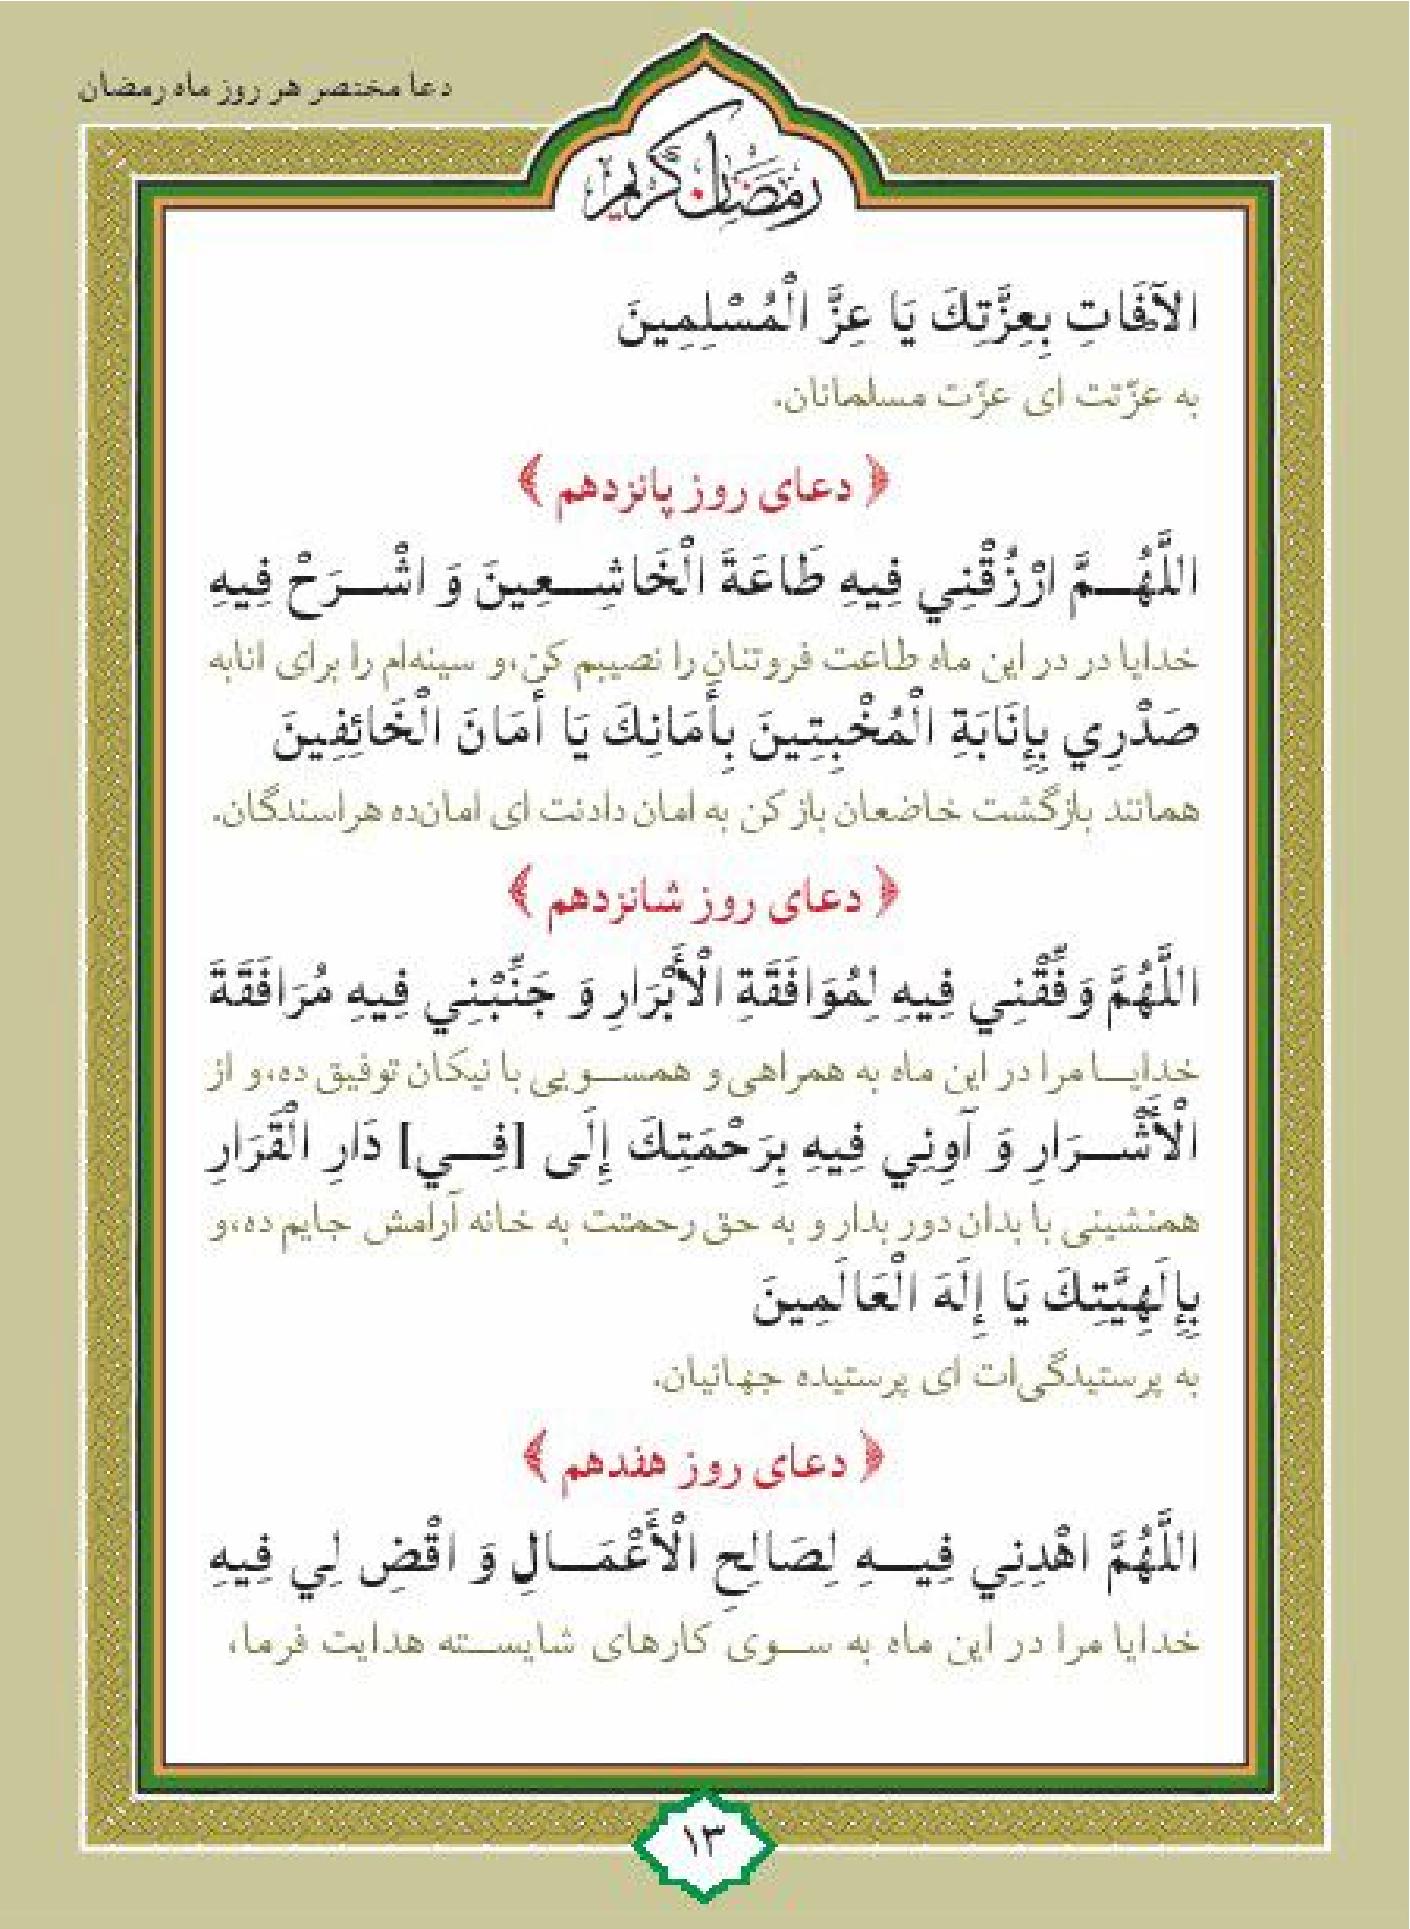 دعا مختصر هر روز ماه رمضان
رمضان کریم
الآفَاتِ بِعِزَّتِكَ يَا عِزَّ الْمُسْلِمِينَ
به عزّتت ای عزّت مسلمانان.
﴿ دعای روز پانزدهم ﴾
اللَّهُـمَّ ارْزُقْنِي فِيهِ طَاعَةَ الْخَاشِـعِينَ وَ اشْـرَحْ فِيهِ
خدایا در در این ماه طاعت فروتنان را نصیبم کن،و سینه‌ام را برای انابه
صَدْرِي بِإِنَابَةِ الْمُخْبِتِينَ بِأَمَانِكَ يَا أَمَانَ الْخَائِفِينَ
همانند بازگشت خاضعان باز کن به امان دادنت ای امان‌ده هراسندگان.
﴿ دعای روز شانزدهم ﴾
اللَّهُمَّ وَفِّقْنِي فِيهِ لِمُوَافَقَةِ الْأَبْرَارِ وَ جَنِّبْنِي فِيهِ مُرَافَقَةَ
خدایـا مرا در این ماه به همراهی و همسـویی با نیکان توفیق ده،و از
الْأَشْـرَارِ وَ آوِنِي فِيهِ بِرَحْمَتِكَ إِلَى [فِـي] دَارِ الْقَرَارِ
همنشینی با بدان دور بدار و به حق رحمتت به خانه آرامش جایم ده،و
بِإِلَهِيَّتِكَ يَا إِلَهَ الْعَالَمِينَ
به پرستیدگی‌ات ای پرستیده جهانیان.
﴿ دعای روز هفدهم ﴾
اللَّهُمَّ اهْدِنِي فِيـهِ لِصَالِحِ الْأَعْمَـالِ وَ اقْضِ لِي فِيهِ
خدایا مرا در این ماه به سـوی کارهای شایسـته هدایت فرما،
۱۳